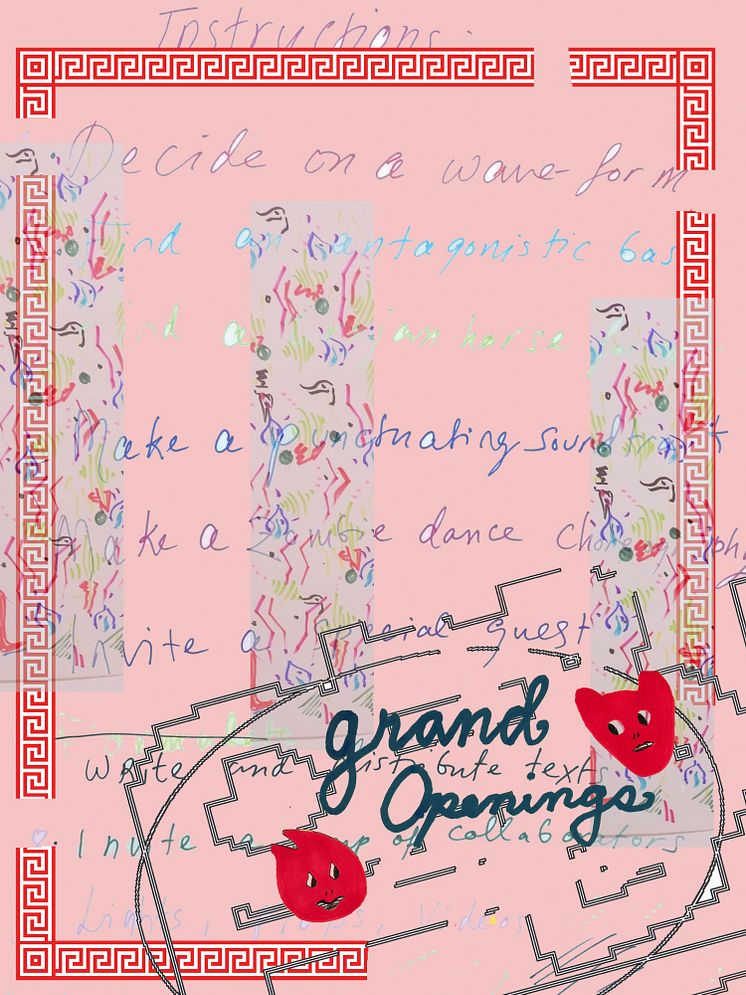 Instructions:
Decide on a wave-form
Find an antagonistic bas
a horse
Make a punctuating soundtrack
Make a Zombie dance choreography
Invite a special guest
grand
Write and distribute texts
Openings
Invite a group of collaborators
Lights, Props, Videos